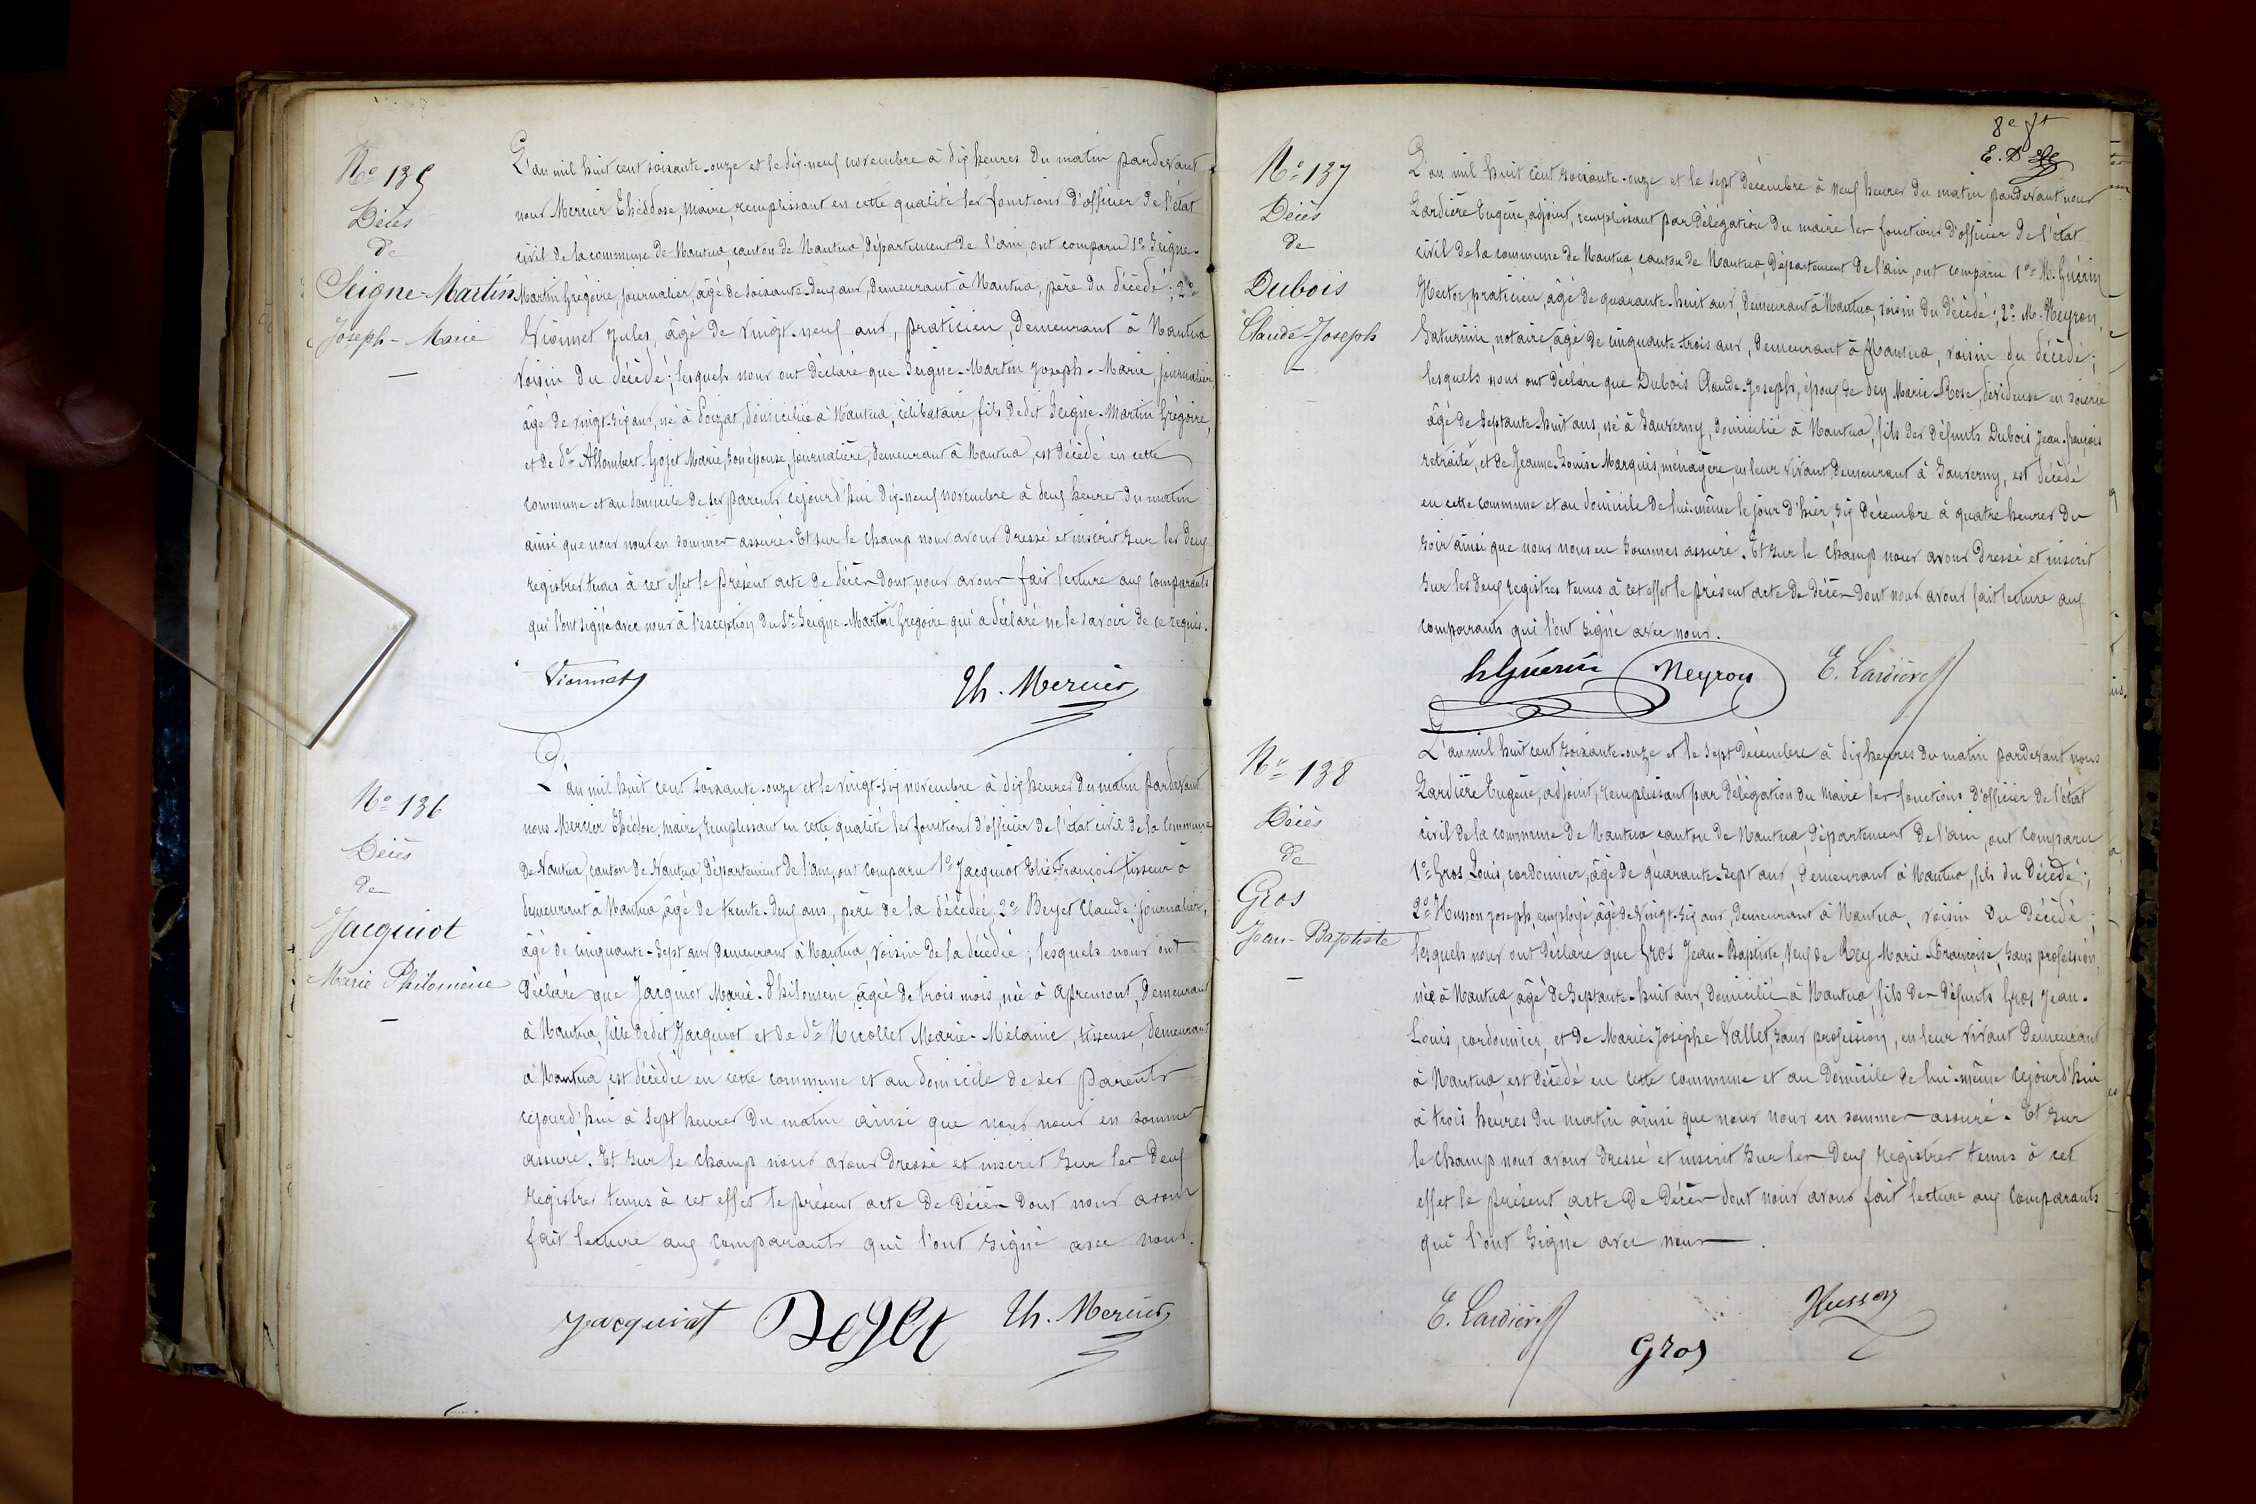 No 135
Décès
de
Seigne-Martin
Joseph-Marie
L'an mil huit cent soixante-onze et le dix-neuf novembre à dix heures du matin pardevant
nous Mercier Théodose, Maire, remplissant en cette qualité les fonctions d'officier de l'état
civil de la commune de Nantua, canton de Nantua, département de l'ain, ont comparu 1o Seigne-
Martin Grégoire, journalier, âgé de soixante-deux ans, demeurant à Nantua, père du décédé; 2o
Vionnet Jules, âgé de vingt-neuf ans, praticien, demeurant à Nantua
voisin du décédé; lesquels nous ont déclaré que Seigne-Martin Joseph-Marie, journalier
âgé de vingt-six ans, né à Poizat, domicilié à Nantua, célibataire, fils de dit Seigne-Martin Grégoire,
et de de Allombert-Gojet Marie, son épouse, journalière, demeurant à Nantua, est décédé en cette
commune et au domicile de ses parents cejourd'hui dix-neuf novembre à deux heures du matin
ainsi que nous nous en sommes assuré. Et sur le champ nous avons dressé et inscrit sur les deux
registres tenus à cet effet le présent acte de décès dont nous avons fait lecture aux comparants
qui l'ont signé avec nous à l'exception du Sr Seigne-Martin Grégoire qui a déclaré ne le savoir de ce requis.
Vionnet Th. Mercier
No 136
Décès
de
Jacquiot
Marie Philomène
L'an mil huit cent soixante-onze et le vingt-six novembre à dix heures du matin pardevant
nous Mercier Théodose, maire, remplissant en cette qualité les fonctions d'officier de l'état civil de la commune
de Nantua, canton de Nantua, département de l'ain, ont comparu 1o Jacquiot Elie François, tisseur à
demeurant à Nantua, âgé de trente-deux ans, père de la décédée, 2o Beyet Claude, journalier,
âgé de cinquante-sept ans demeurant à Nantua, voisin de la décédée; lesquels nous ont
déclaré que Jacquiot Marie-Philomène, âgée de trois mois, née à Apremont, demeurant
à Nantua, fille de dit Jacquiot et de de Nicollet Marie-Mélanie, tisseuse, demeurant
à Nantua, est décédée en cette commune et au domicile de ses parents
cejourd'hui à sept heures du matin ainsi que nous nous en somme
assuré. Et sur le champ nous avons dressé et inscrit sur les deux
registres tenus à cet effet le présent acte de décès dont nous avons
fait lecture aux comparants qui l'ont signé avec nous.
Jacquiot Beyet Th. Mercier
8e ft
No 137
Décès
de
Dubois
Claude-Joseph
L'an mil huit cent soixante-onze et le sept décembre à neuf heures du matin pardevant nous
Lardière Eugène, adjoint, remplissant par délégation du maire les fonctions d'officier de l'état
civil de la commune de Nantua, canton de Nantua, département de l'ain, ont comparu 1o M. Guérin
Hector, praticien, âgé de quarante-huit ans, demeurant à Nantua, voisin du décédé; 2o M. Neyron,
Saturnin, notaire, âgé de cinquante-trois ans, demeurant à Nantua, voisin du décédé;
lesquels nous ont déclaré que Dubois Claude-Joseph, époux de Dey Marie-Rose, dévideuse en soierie
âgé de septante-huit ans, né à Sauverny, domicilié à Nantua, fils des défunts Dubois Jean-françois
retraité, et de Jeanne-Louise Marquis, ménagère, en leur vivant demeurant à Sauverny, est décédé
en cette commune et au domicile de lui-même le jour d'hier, six décembre à quatre heures du
soir ainsi que nous nous en sommes assuré. Et sur le champ nous avons dressé et inscrit
sur les deux registres tenus à cet effet le présent acte de décès dont nous avons fait lecture aux
comparants qui l'ont signé avec nous.
hGuérin Neyron E. Lardière
No 138
Décès
de
Gros
Jean-Baptiste
L'an mil huit cent soixante-onze et le sept décembre à dix heures du matin pardevant nous
Lardière Eugène, adjoint, remplissant par délégation du maire les fonctions d'officier de l'état
civil de la commune de Nantua canton de Nantua, département de l'ain, ont comparu
1o Gros Louis, cordonnier, âgé de quarante-sept ans, demeurant à Nantua, fils du décédé;
2o Husson Joseph, employé, âgé de vingt-six ans, demeurant à Nantua, voisin du décédé;
lesquels nous ont déclaré que Gros Jean-Baptiste, veuf de Rey Marie-Françoise, sans profession,
née à Nantua, âgé de septante-huit ans, domicilié à Nantua, fils des défunts Gros Jean-
Louis, cordonnier, et de Marie-Josèphe Vallet, sans profession, en leur vivant demeurant
à Nantua, est décédé en cette commune et au domicile de lui-même cejourd'hui
à trois heures du matin ainsi que nous nous en sommes assuré. Et sur
le champ nous avons dressé et inscrit sur les deux registres tenus à cet
effet le présent acte de décès dont nous avons fait lecture aux comparants
qui l'ont signé avec nous.
E. Lardière Gros Husson